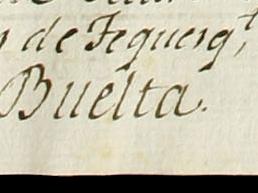 de Fequerq,t
Buelta.